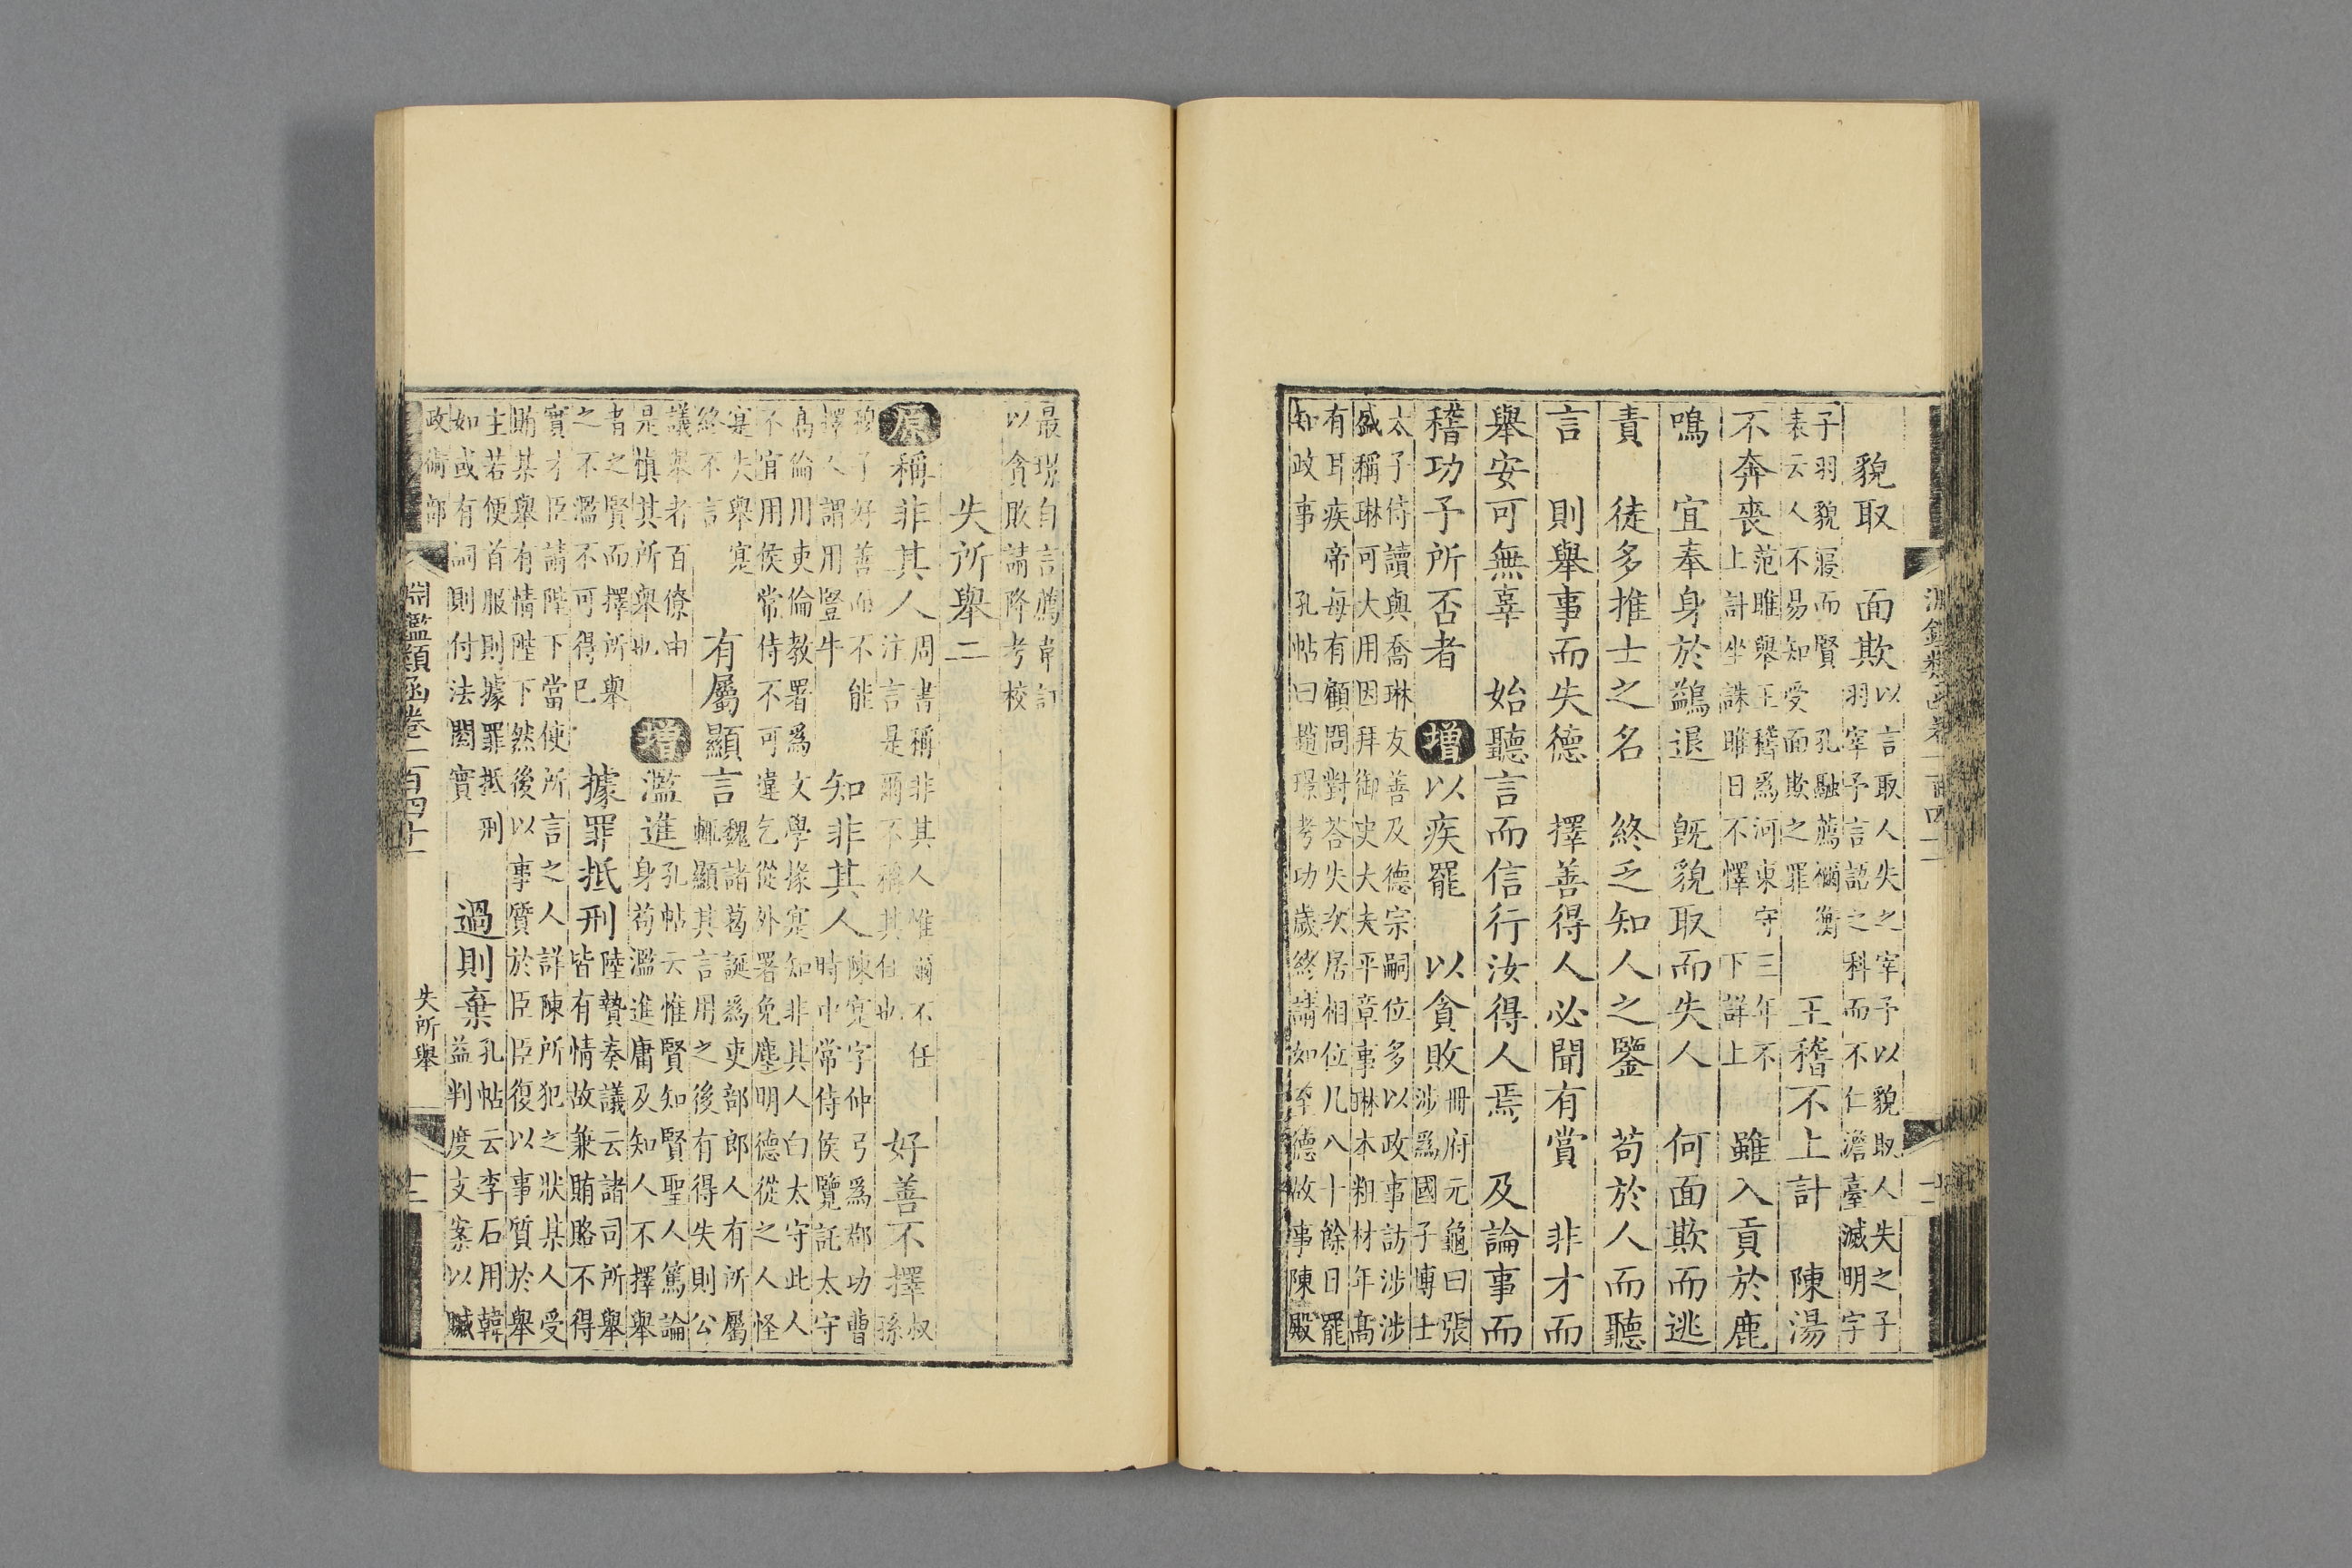 淵鑑類函卷一百四十二
貌取　面欺　以言取人失之宰予以貌取人失之子羽宰予言認之科而不仁澹臺滅明字
子羽貌寢而賢　孔融薦禰衡表云人不易知受面欺之罪　王稽不上計　陳湯
不奔喪　范雎舉王稽爲河東守三年不上計坐誅雎日不懌　下詳上　雖入貢於鹿
鳴　宜奉身於鷁退　既貌取而失人　何面欺而逃
責　徒多推士之名　終乏知人之鑒　苟於人而聽
言　則舉事而失德　擇善得人必聞有賞　非才而
舉安可無辜　始聽言而信行汝得人焉　及論事而
稽功予所否者　增　以疾罷　以貪敗　冊府元龜曰張涉爲國子博士
太子侍讀與喬琳友善及德宗嗣位多以政事訪涉涉盛稱琳可大用因拜御史大夫平章事琳本粗材年高
有耳疾帝每有顧問對荅失次居相位凡八十餘日罷知政事　孔帖曰趙璟考功歲終請如至德故事陳殿
最璟自言薦韋訂以貪敗請降考校
失所舉二
原　稱非其人　周書稱非其人惟爾不任注言是爾不稱其任也　好善不擇　叔孫
穆子好善而不能擇人謂用豎牛　知非其人　陳寔字仲弓爲郡功曹時中常侍侯覽託太守
高倫用吏倫教署爲文學掾寔知非其人白太守此人不宜用侯常侍不可違乞從外署免塵明德從之人怪
寔失舉寔終不言　有屬顯言　魏諸葛誕爲吏部郎人有所屬輒顯其言用之後有得失則公
議舉者百僚由是慎其所舉也　增　濫進　孔帖云惟賢知賢聖人篤論身苟濫進庸及知人不擇舉
者之賢而擇所舉之不濫不可得已　據罪抵刑　陸贄奏議云諸司所舉皆有情故兼賄賂不得
實才臣請陛下當使所言之人詳陳所犯之狀某人受賄某舉有情陛下然後以事質於臣臣復以事質於舉
主若便首服則據罪抵刑如或有詞則付法閱實　過則棄　孔帖云李石用韓益判度支案以贓
政術部
淵鑑類函卷一百四十二　失所舉　十二